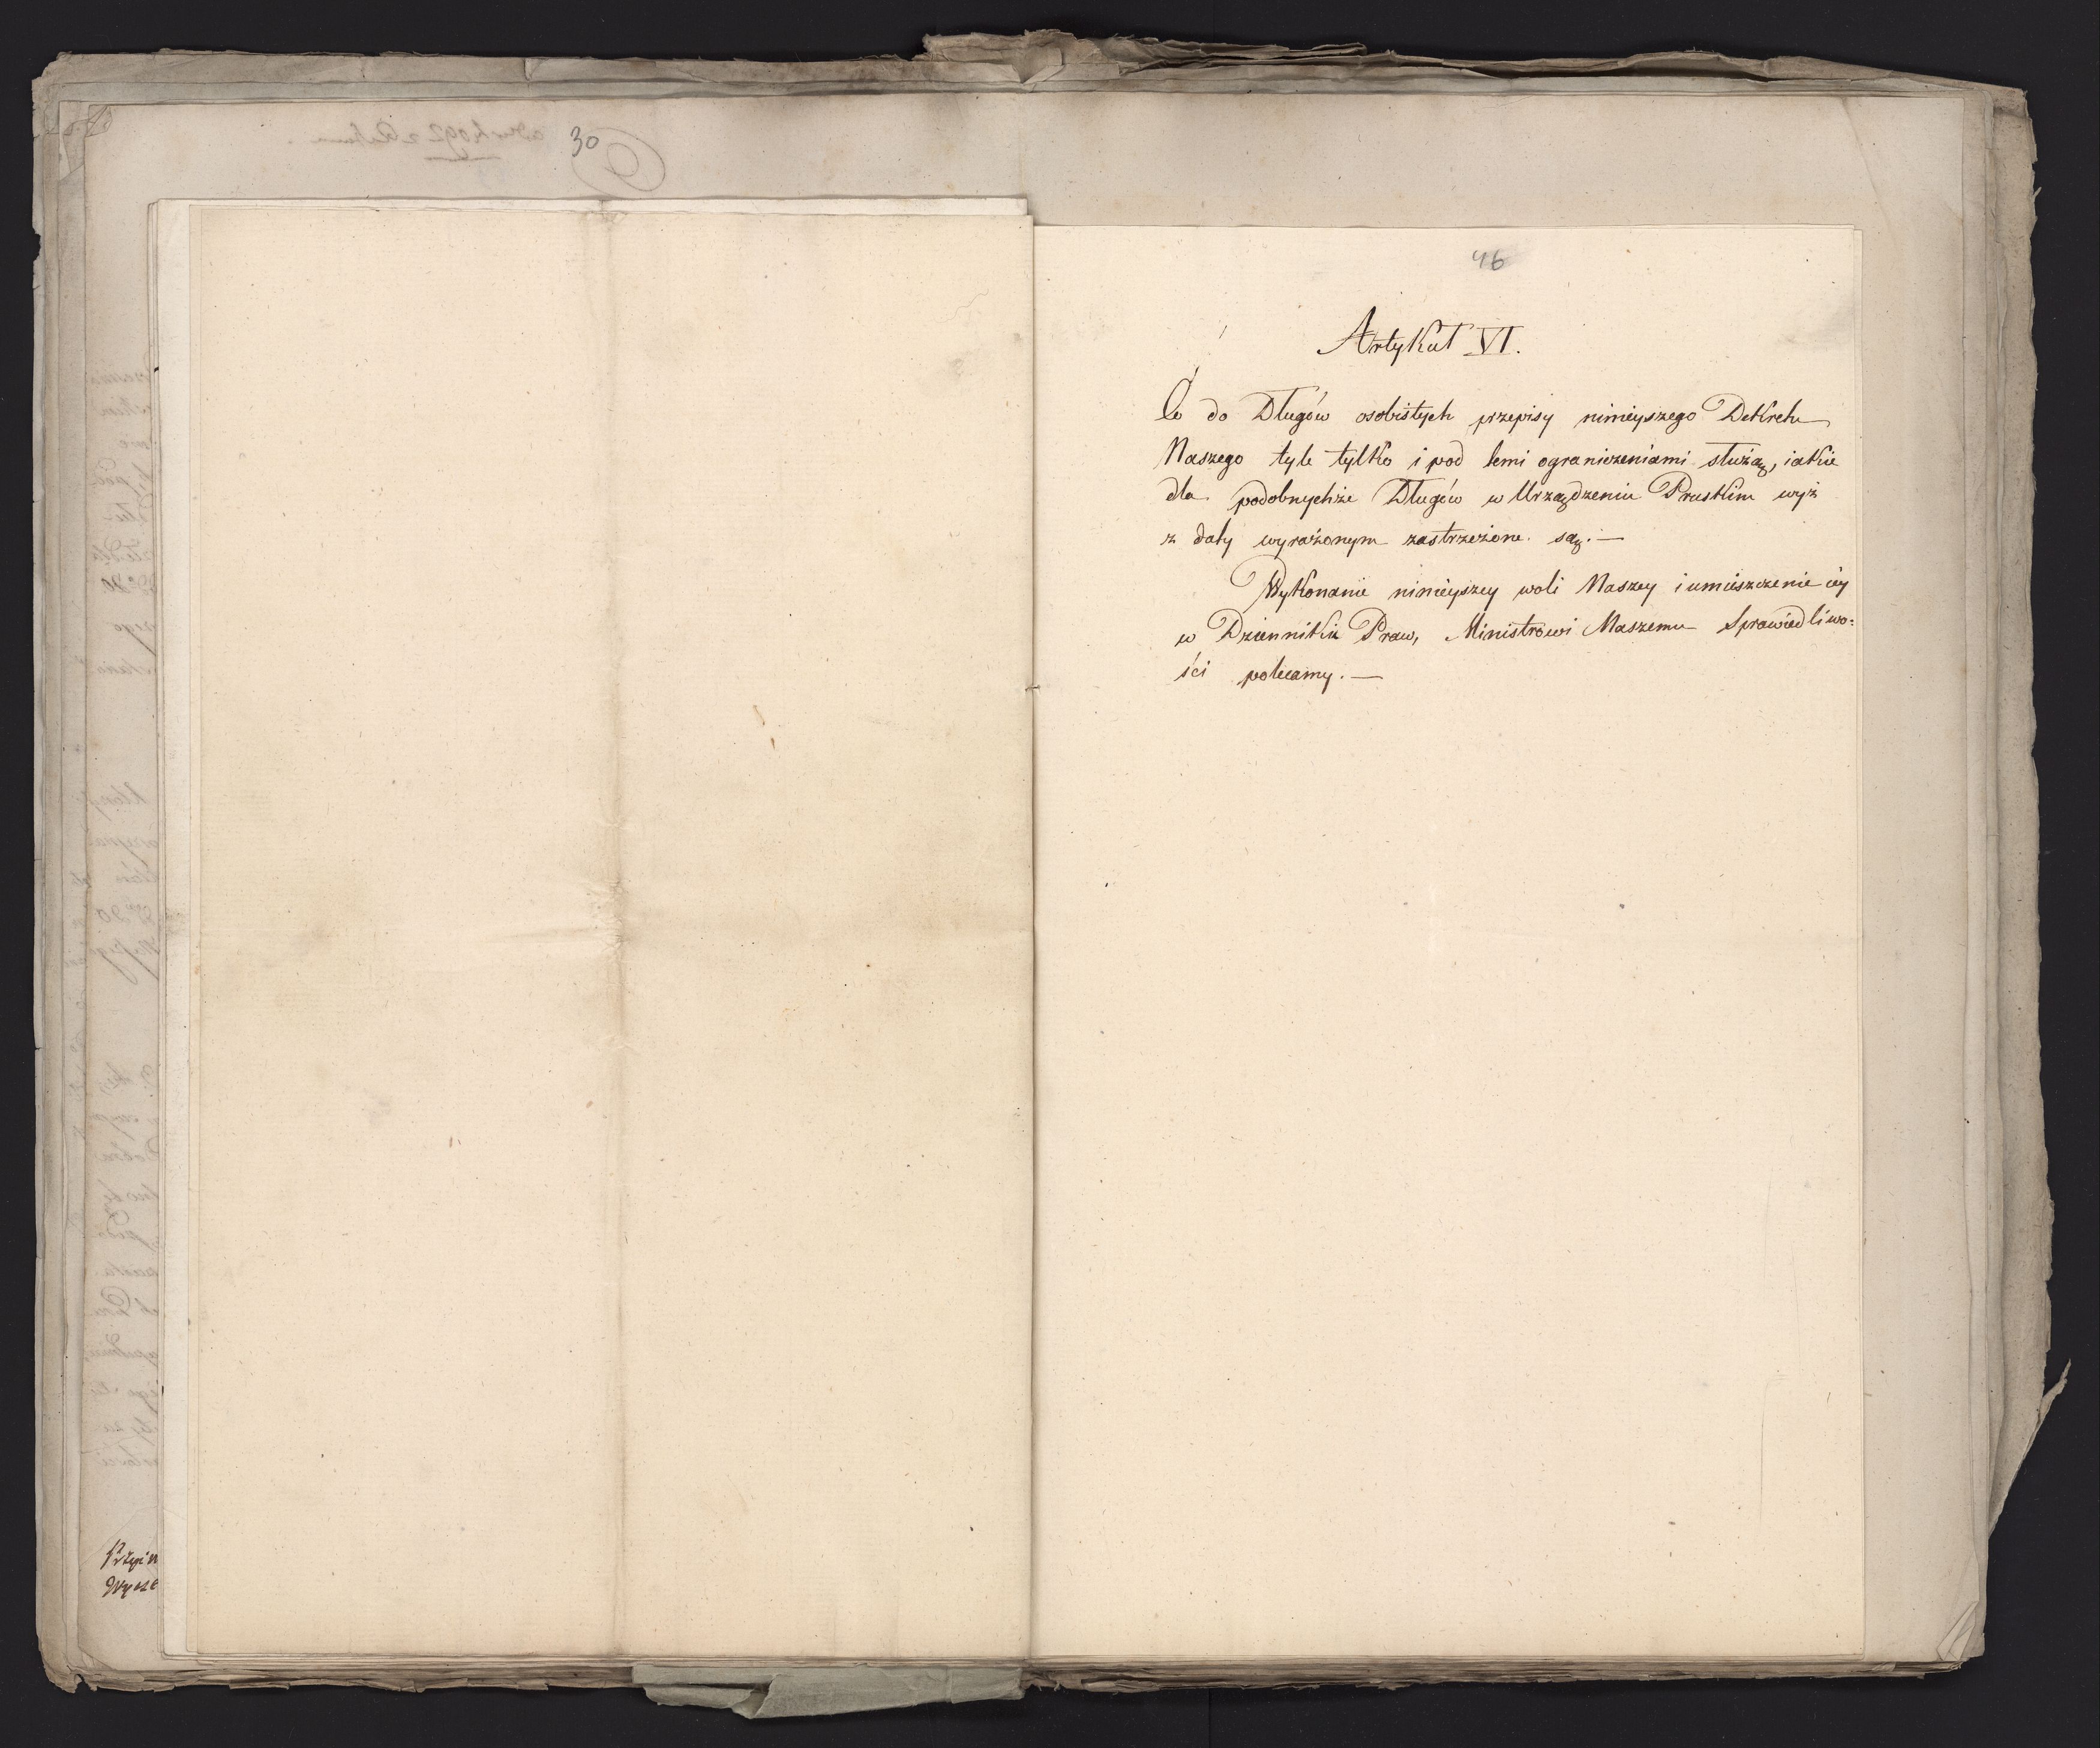 30
46
Artykuł VI.
Co do Długów osobistych przepisy ninieyszego Dekretu
Naszego tyle tylko i pod temi ograniczeniami służą, iakie
dla podobnychże Długów w Urządzeniu Pruskim wyż
z daty wyrażonym zastrzeżone są. —
Wykonanie ninieyszey woli Naszey i umieszczenie iey
w Dzienniku Praw, Ministrowi Naszemu Sprawiedliwo:
ści polecamy. —